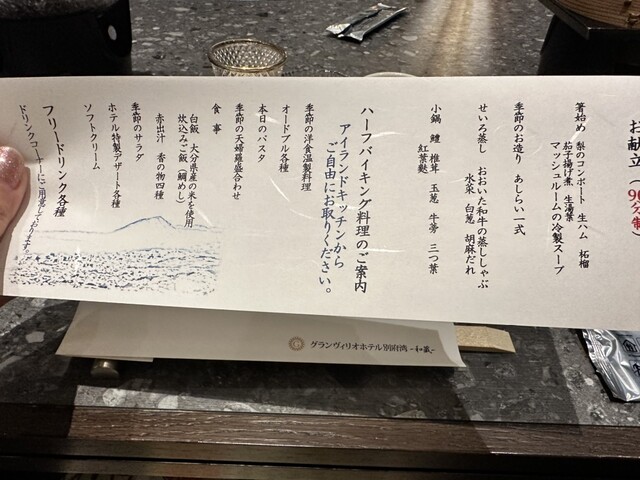 お献立（90分制）
箸始め 梨のコンポート 生ハム 柘榴
茄子揚げ煮 生湯葉
マッシュルームの冷製スープ
季節のお造り あしらい一式
せいろ蒸し おおいた和牛の蒸ししゃぶ
水菜 白葱 胡麻だれ
小鍋 鱧 椎茸 玉葱 牛蒡 三つ葉
紅葉麩
ハーフバイキング料理のご案内
アイランドキッチンから
ご自由にお取りください。
季節の洋食温製料理
オードブル各種
本日のパスタ
季節の天婦羅盛合わせ
食事
白飯 大分県産の米を使用
炊込みご飯（鯛めし）
赤出汁 香の物四種
季節のサラダ
ホテル特製デザート各種
ソフトクリーム
フリードリンク各種
ドリンクコーナーにご用意しております。
グランヴィリオホテル別府湾 -和蔵-